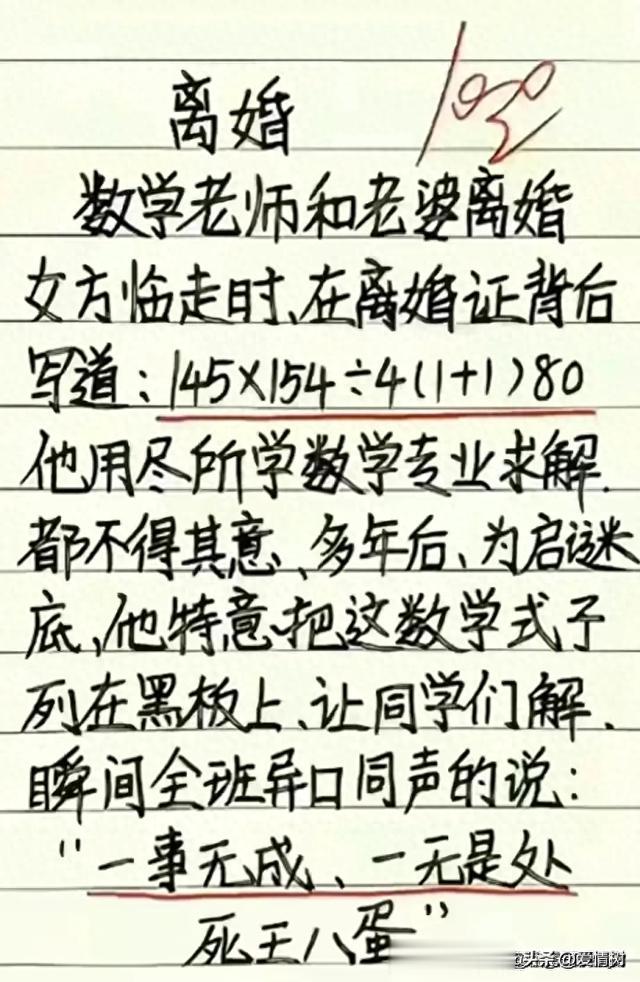 100
离婚
数学老师和老婆离婚
女方临走时、在离婚证背后
写道：145×154÷4(1+1)80
他用尽所学数学专业求解.
都不得其意、多年后、为启谜
底、他特意把这数学式子
列在黑板上、让同学们解.
瞬间全班异口同声的说：
“一事无成、一无是处
死王八蛋”
头条@爱情树